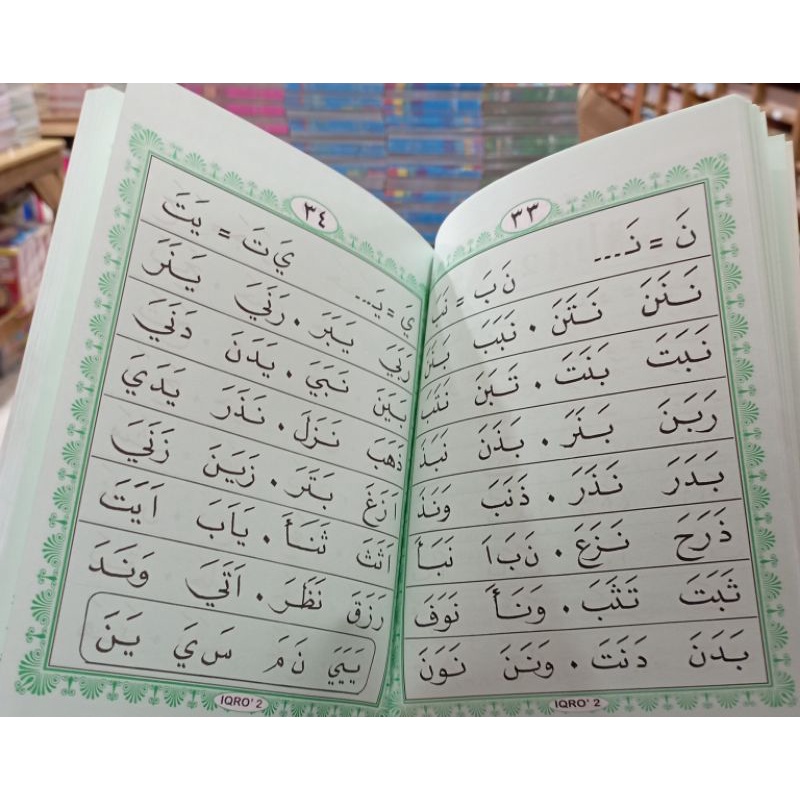 ٣٣
نَ = نَـ... نَ بَ = نَبَ
نَنَنَ نَتَنَ . نَبَبَ بَنَنَ
نَبَتَ بَنَتَ . تَبَنَ نَتَبَ
رَبَنَ بَنَرَ . بَذَنَ نَبَذَ
بَدَرَ نَذَرَ . ذَنَبَ وَنَذَ
ذَرَحَ نَزَعَ . نَبَاَ نَبَأَ
ثَبَتَ تَثَبَ . وَنَأَ نَوَفَ
بَدَنَ دَنَتَ . وَنَنَ نَوَنَ
IQRO' 2
٣٤
يَ = يَـ... يَ تَ = يَتَ
رَبَيَ يَبَرَ . رَنَيَ يَنَرَ
بَيَنَ نَبَيَ . يَدَنَ دَنَيَ
ذَهَبَ نَزَلَ . نَذَرَ يَدَيَ
اَزَغَ بَتَرَ . زَيَنَ زَنَيَ
اَثَثَ ثَنَأَ . يَاَبَ اَيَتَ
رَزَقَ نَظَرَ . اَتَيَ وَنَدَ
يَيَيَ نَ مَ سَ يَ يَنَ
IQRO' 2